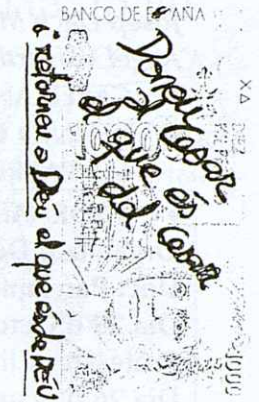 BANCO DE ESPAÑA
"Doneu
al Cesar
el que és
del Cesar
i retorneu a Déu el que és de DÉU
1000